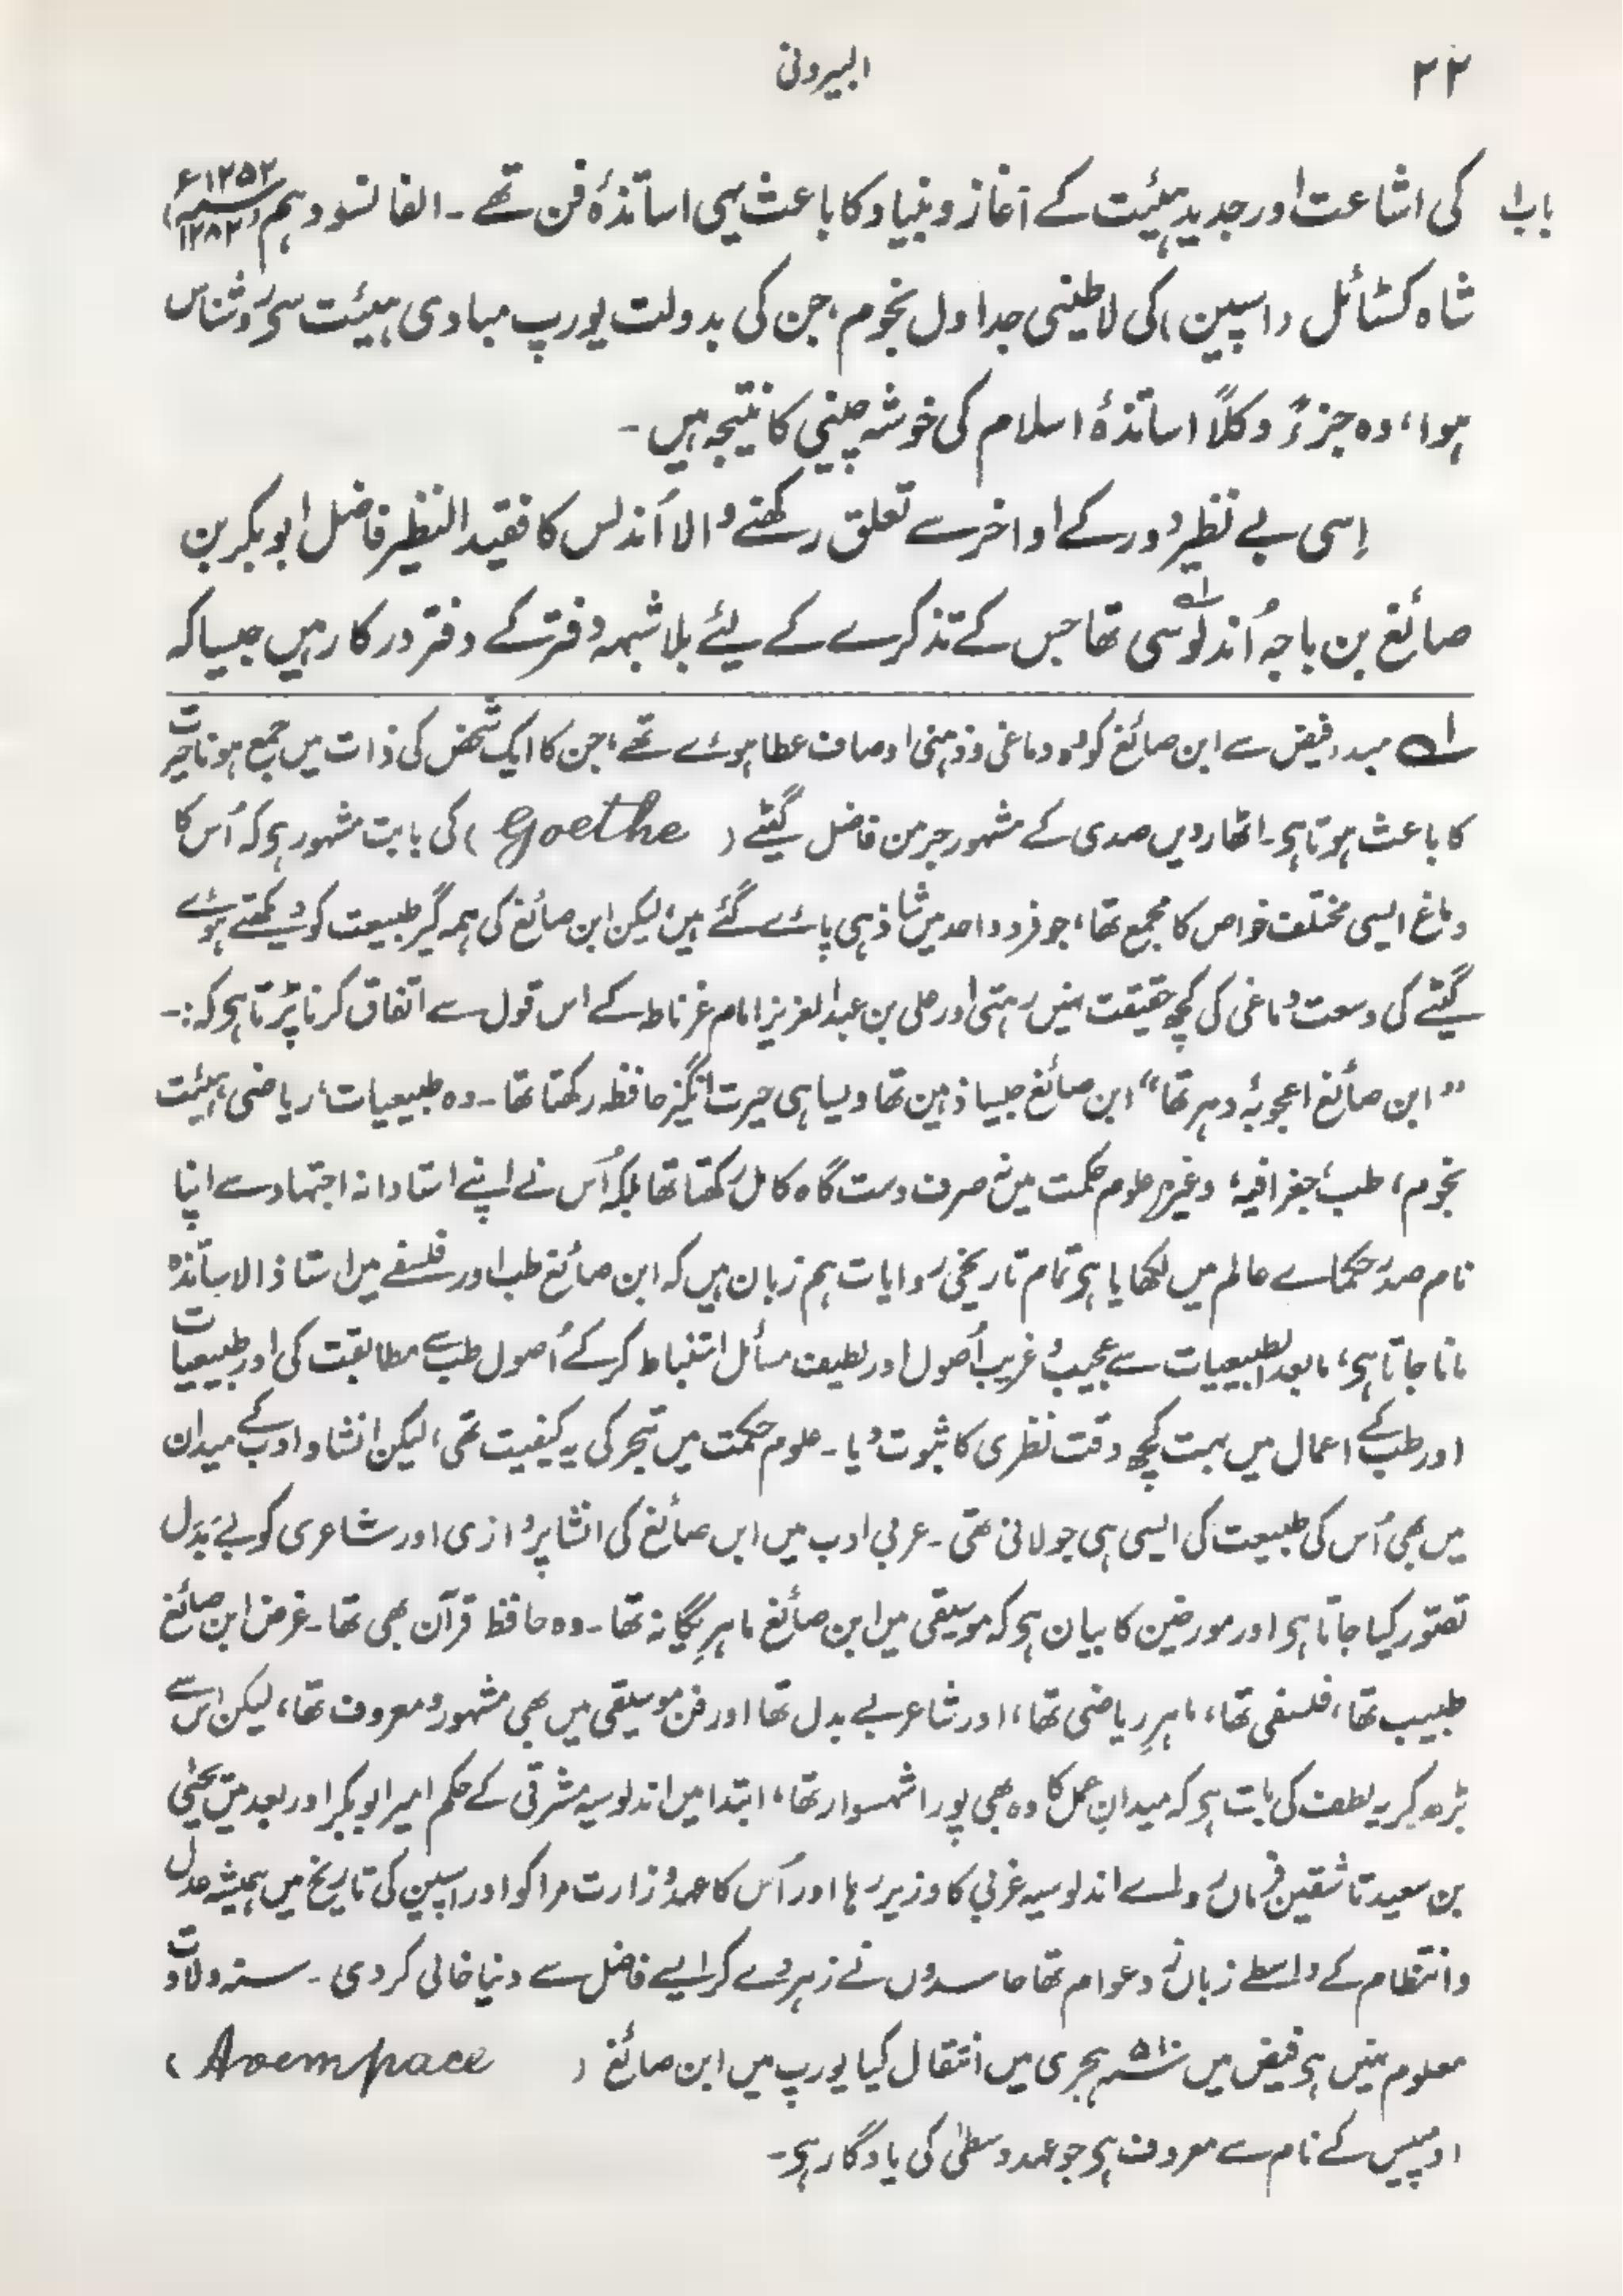 ۲۲ البیرونی
باب۱ کی اشاعت اور جدید ہیئت کے آغاز و بنیاد کا باعث یہی اساتذۂ فن تھے۔ الفانسو دہم (۱۲۵۲ء ۱۲۸۲)
شاہ کسٹائل (اسپین) کی لاطینی جداول نجوم، جن کی بدولت یورپ مبادی ہیئت سے روشناس
ہوا، وہ جزءً وکلاً اساتذۂ اسلام کی خوشہ چینی کا نتیجہ ہیں۔
اِسی بے نظیر دور کے اواخر سے تعلق رکھنے والا اَندلس کا فقید النظیر فاضل ابوبکر بن
صائغ بن باجہ اُندلوسی۱ تھا جس کے تذکرے کے لیئے بلاشبہہ دفتر کے دفتر درکار ہیں جیسا کہ
۱ مبدء فیض سے ابن صائغ کو وہ دماغی و ذہنی اوصاف عطا ہوئے تھے، جن کا ایک شخص کی ذات میں جمع ہونا حیرت
کا باعث ہوتا ہی۔ اٹھارویں صدی کے مشہور جرمن فاضل گیٹے (Goethe) کی بابت مشہور ہی کہ اُس کا
دماغ ایسی مختلف خواص کا مجمع تھا، جو فرد واحد میں شاذ ہی پائے گئے ہیں، لیکن ابن صائغ کی ہمہ گیر طبیعت کو دیکھتے ہوئے
گیٹے کی وسعت دماغی کی کچھ حقیقت نہیں رہتی اور علی بن عبدالعزیز امام غرناطہ کے اس قول سے اتفاق کرنا پڑتا ہی کہ:۔
”ابن صائغ اعجوبۂ دہر تھا“ ابن صائغ جیسا ذہین تھا ویسا ہی حیرت انگیز حافظہ رکھتا تھا۔ وہ طبیعیات، ریاضی، ہیئت
نجوم، طب، جغرافیہ، وغیرہ علوم حکمت میں نہ صرف دست گاہ کامل رکھتا تھا بلکہ اُس نے اپنے استادانہ اجتہاد سے اپنا
نام صدر حکمائے عالم میں لکھایا ہی تمام تاریخی روایات ہم زبان ہیں کہ ابن صائغ طب اور فلسفے میں استاذ الاساتذہ
مانا جاتا ہی، مابعد الطبیعیات سے عجیب و غریب اُصول اور لطیف مسائل استنباط کر کے اُصول طب سے مطابقت کی اور طبیعیات
اور طب کے اعمال میں بہت کچھ دقت نظری کا ثبوت دیا۔ علوم حکمت میں تبحر کی یہ کیفیت تھی، لیکن انشا و ادب کے میدان
میں بھی اُس کی طبیعت کی ایسی ہی جولانی تھی۔ عربی ادب میں ابن صائغ کی انشا پردازی اور شاعری کو بے بدل
تصوّر کیا جاتا ہی اور مورخین کا بیان ہی کہ موسیقی میں ابن صائغ ماہرِ یگانہ تھا۔ وہ حافظ قرآن بھی تھا۔ غرض ابن صائغ
طبیب تھا، فلسفی تھا، ماہرِ ریاضی تھا، اور شاعر بے بدل تھا اور فن موسیقی میں بھی مشہور و معروف تھا، لیکن اس سے
بڑھ کر یہ لطف کی بات ہی کہ میدانِ عمل کا وہ بھی پورا شہسوار تھا، ابتدا میں اندلوسیہ مشرقی کے حکم امیر ابوبکر اور بعد میں یحیٰی
بن سعید تاشقین فرماں روائے اندلوسیہ غربی کا وزیر رہا اور اُس کا عہد وزارت مراکو اور اسپین کی تاریخ میں ہمیشہ عدل
و انتظام کے واسطے زبان زد عوام تھا حاسدوں نے زہر دے کر ایسے فاضل سے دنیا خالی کر دی۔ سنہ ولادت
معلوم نہیں ہی فیض میں ہجری میں انتقال کیا یورپ میں ابن صائغ (Avempace)
اومپیس کے نام سے معروف ہی جو عہد وسطیٰ کی یادگار ہی۔